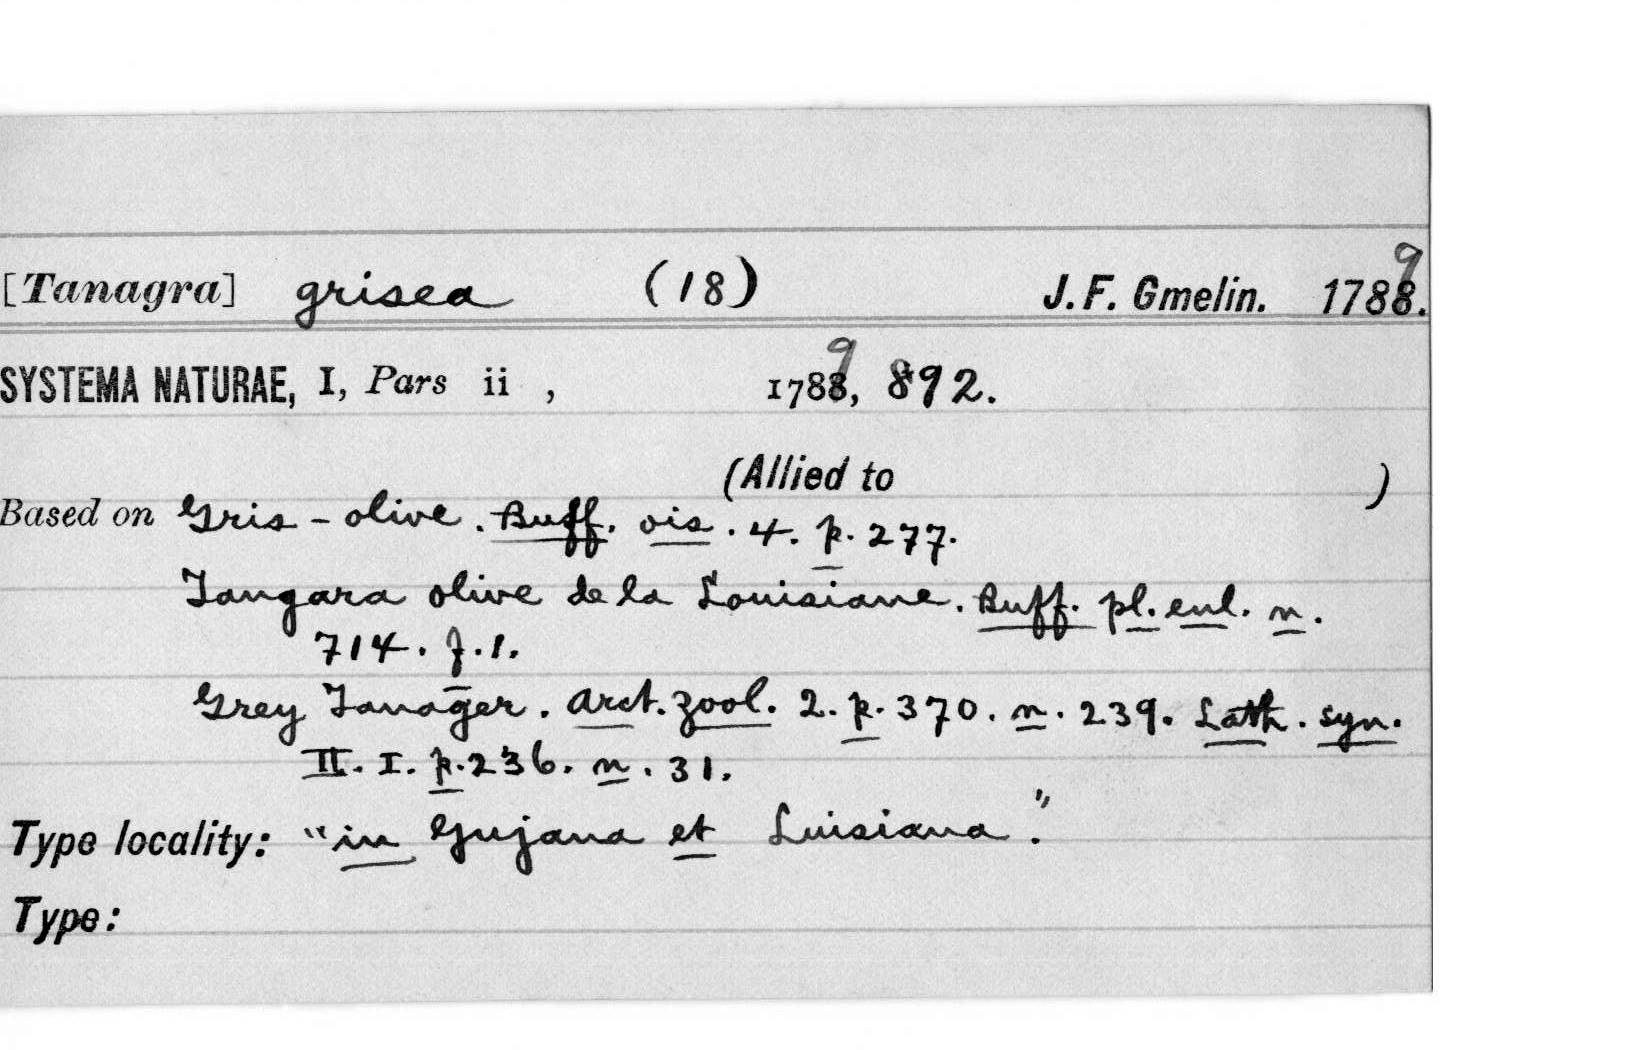 [Tanagra] grisea (18) J. F. Gmelin. 1789.
SYSTEMA NATURAE, I, Pars ii , 1789, 892.
(Allied to )
Based on Gris-olive. Buff. ois. 4. p. 277.
Tangara olive de la Louisiane. Buff. pl. enl. n.
714. f. 1.
Grey Tanager. Arct. zool. 2. p. 370. n. 239. Lath. syn.
II. I. p. 236. n. 31.
Type locality: "in Gujana et Luisiana."
Type: